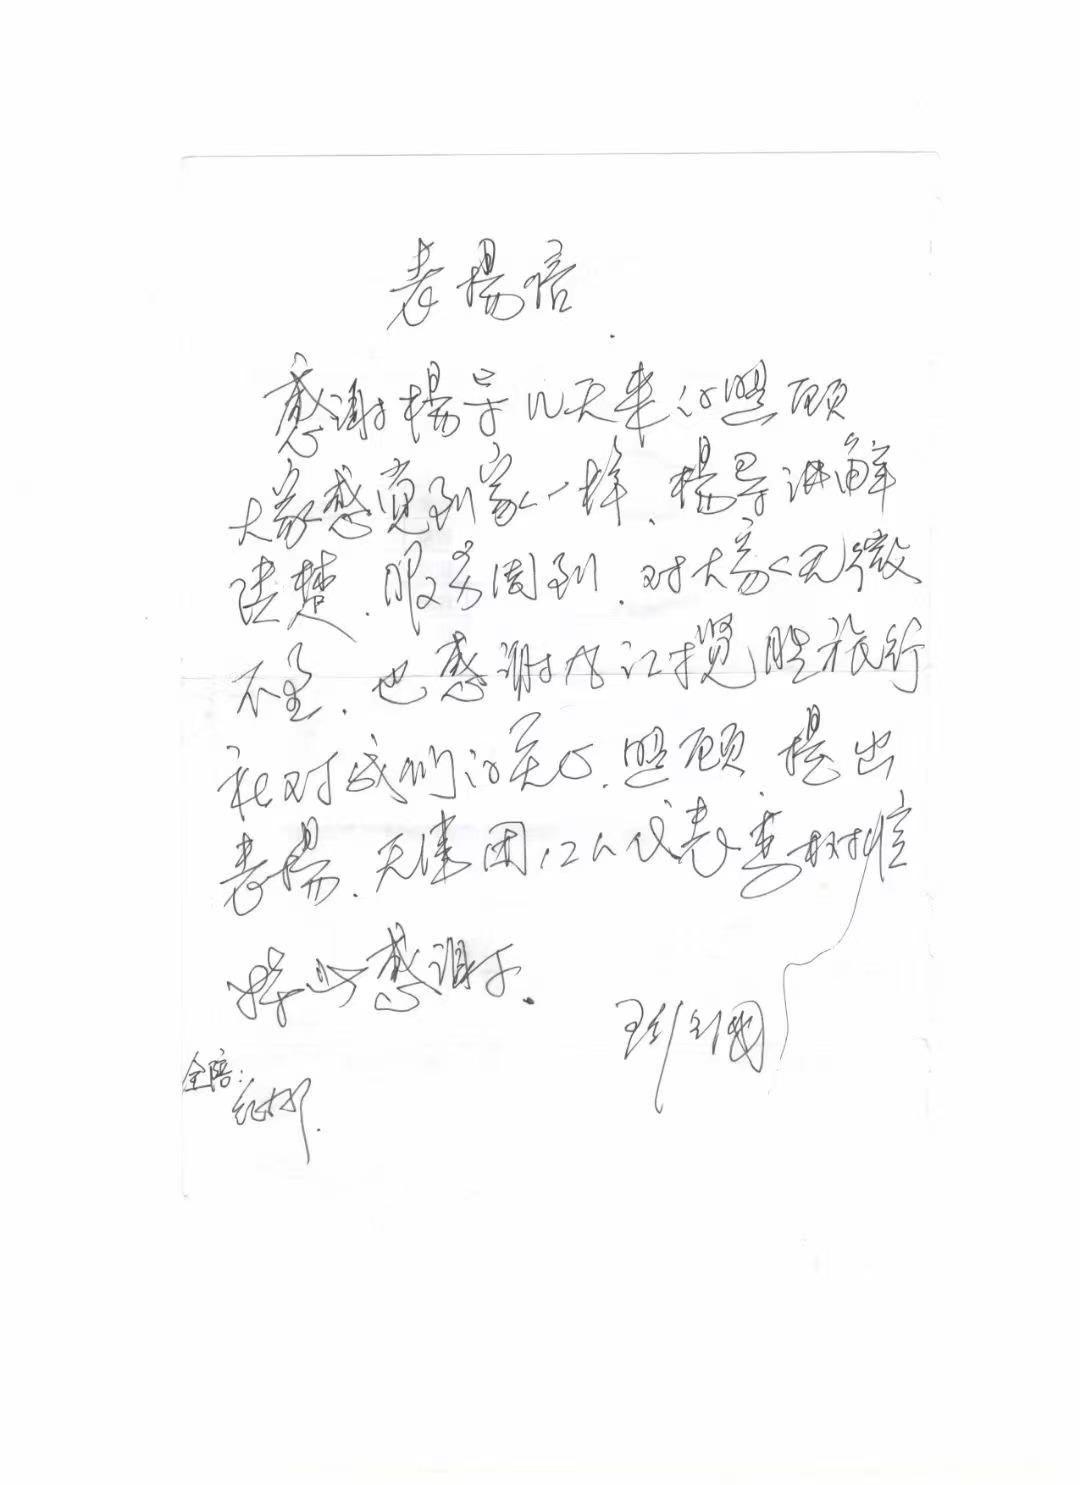 表揚信
感谢楊导几天来的照顾
大家感觉到家一样、楊导讲解
清楚、服务周到、对大家无微
不至、也感谢九江揽胜旅行
社对我们的关心、照顾、提出
表揚、天津团12人代表李树信
特此感谢.
国
全陪：